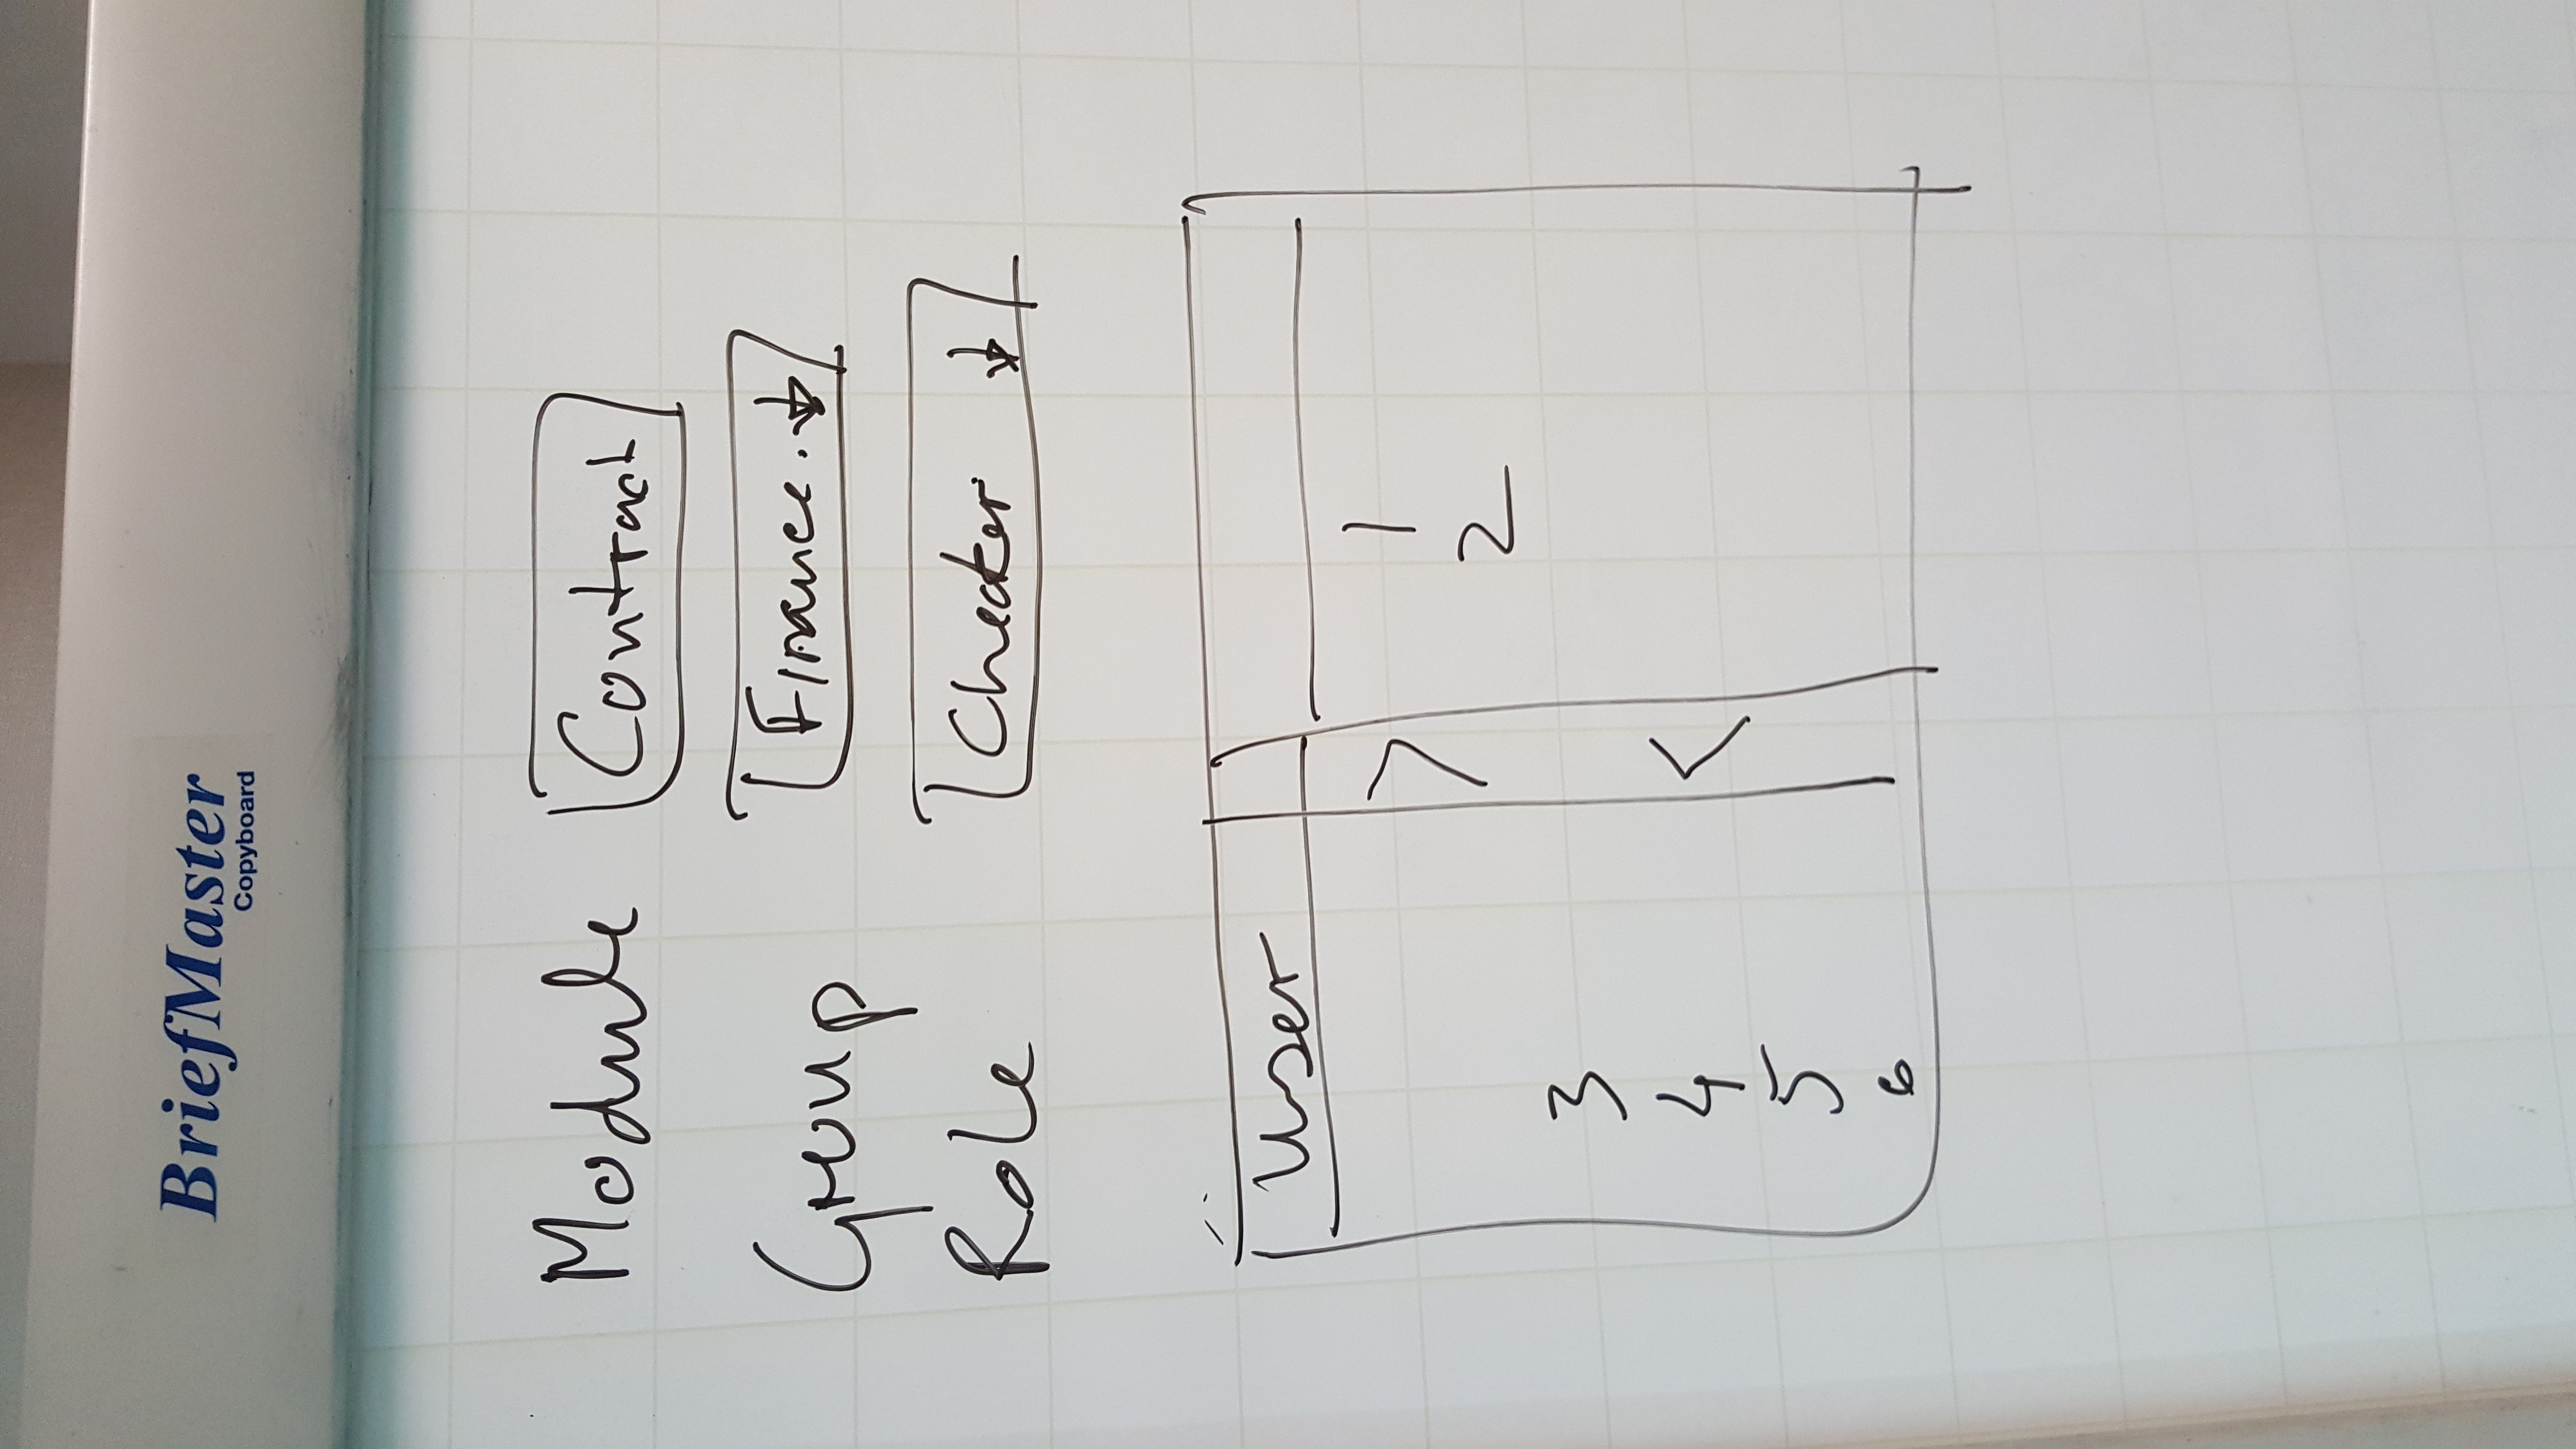 BriefMaster
Copyboard
Module Contract
Group Finance. ↓
Role Checker ↓
User
> 1
2
3
4 <
5
6